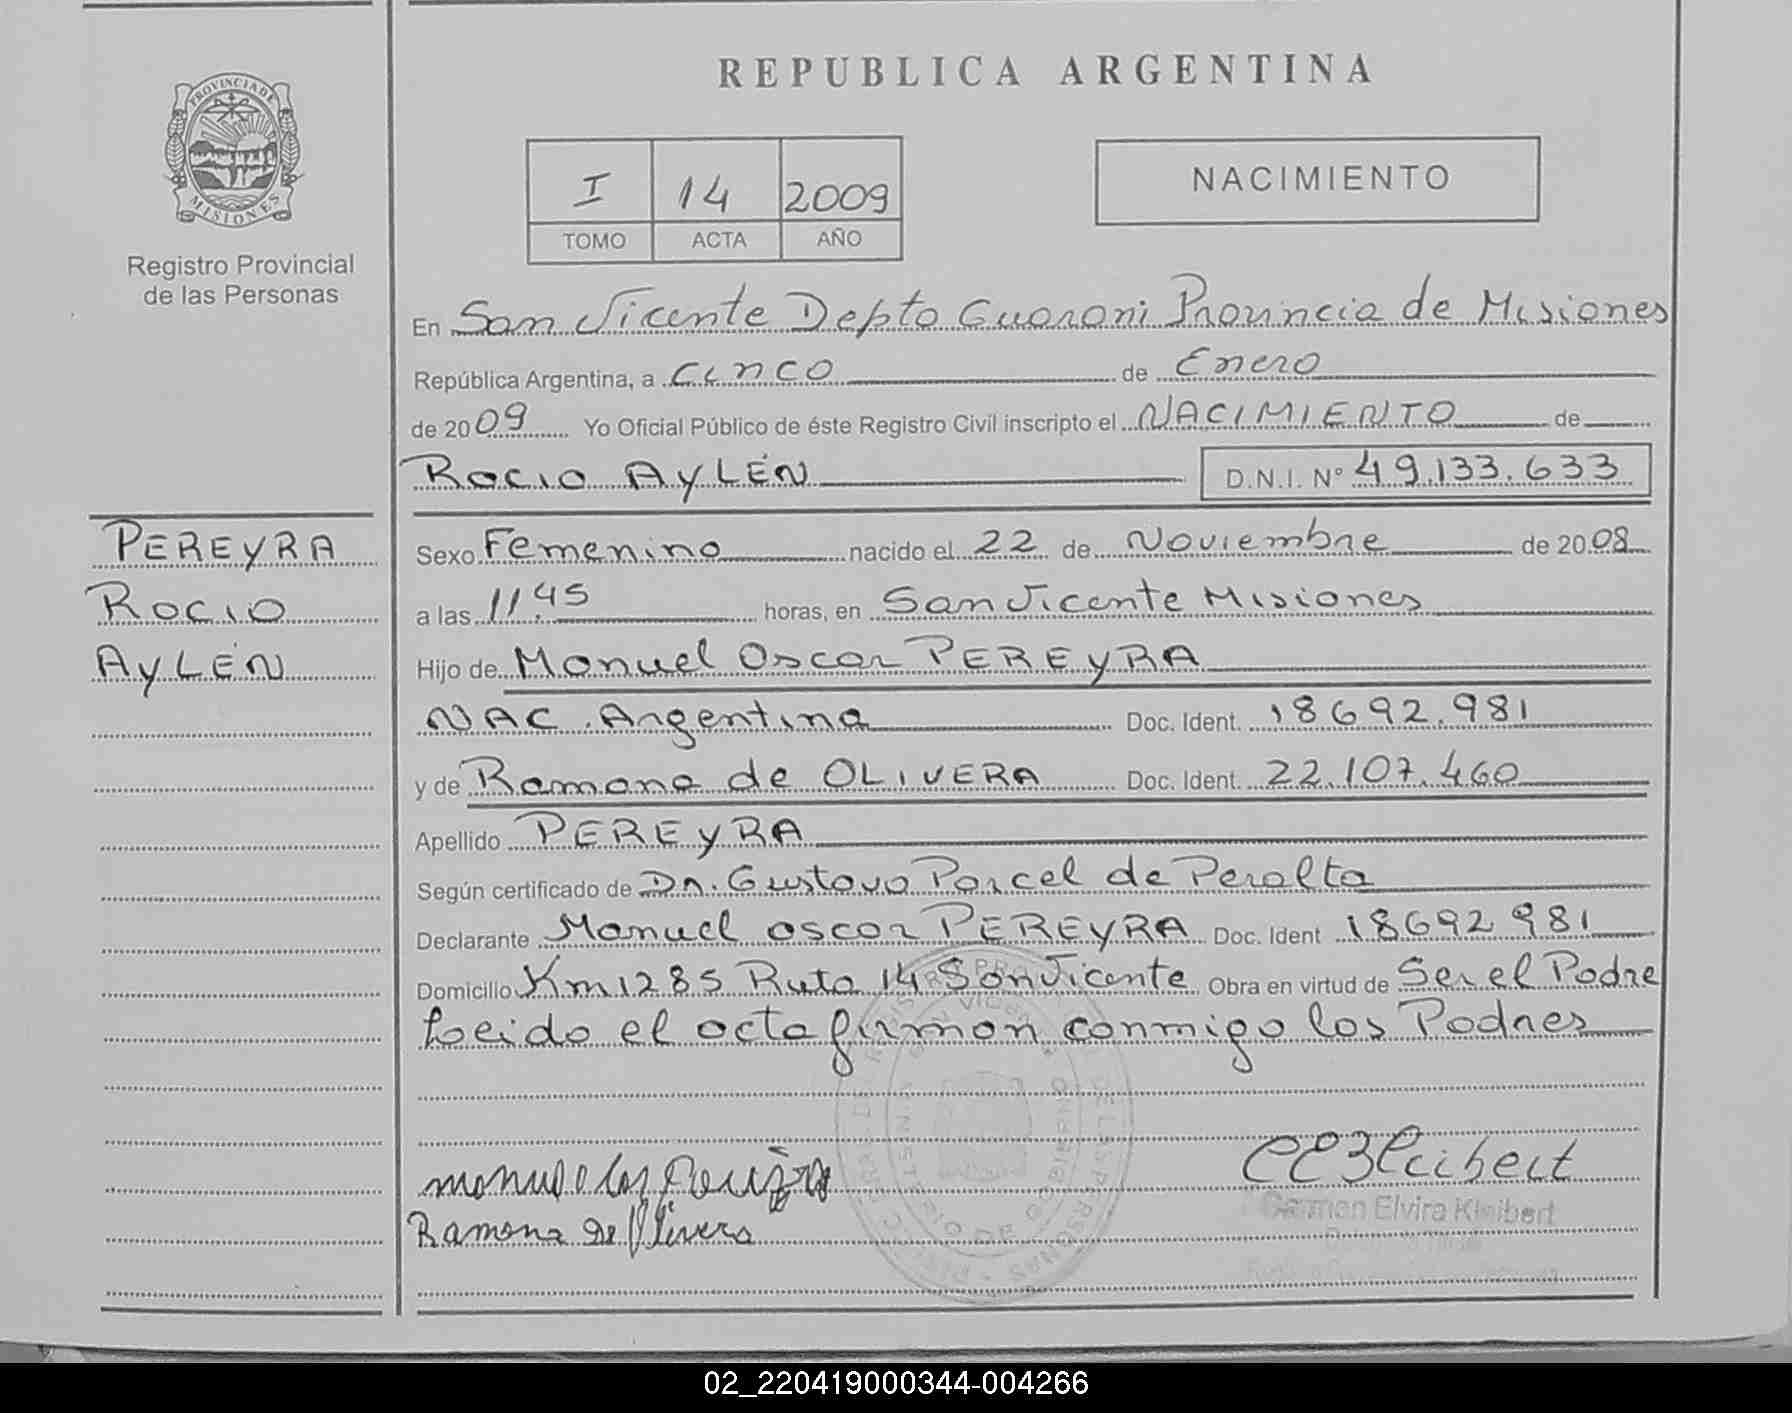 REPUBLICA ARGENTINA
PROVINCIA DE
MISIONES
Registro Provincial
de las Personas
I 14 2009
TOMO ACTA AÑO
NACIMIENTO
En San Vicente Depto Guaraní Provincia de Misiones
República Argentina, a cinco de Enero
de 2009 Yo Oficial Público de éste Registro Civil inscripto el NACIMIENTO de
ROCIO AYLÉN D.N.I. Nº 49.133.633
PEREYRA
ROCIO
AYLÉN
Sexo Femenino nacido el 22 de Noviembre de 2008
a las 11:45 horas, en San Vicente Misiones
Hijo de Manuel Oscar PEREYRA
NAC. Argentina Doc. Ident. 18692.981
y de Ramona de OLIVERA Doc. Ident. 22.107.460
Apellido PEREYRA
Según certificado de Dr. Gustavo Porcel de Peralta
Declarante Manuel oscar PEREYRA Doc. Ident 18692 981
Domicilio Km 1285 Ruta 14 San Vicente Obra en virtud de Ser el Padre
Leido el acta firman conmigo los Padres
Ramona De Olivera
Carmen Elvira Kleibert
02_220419000344-004266